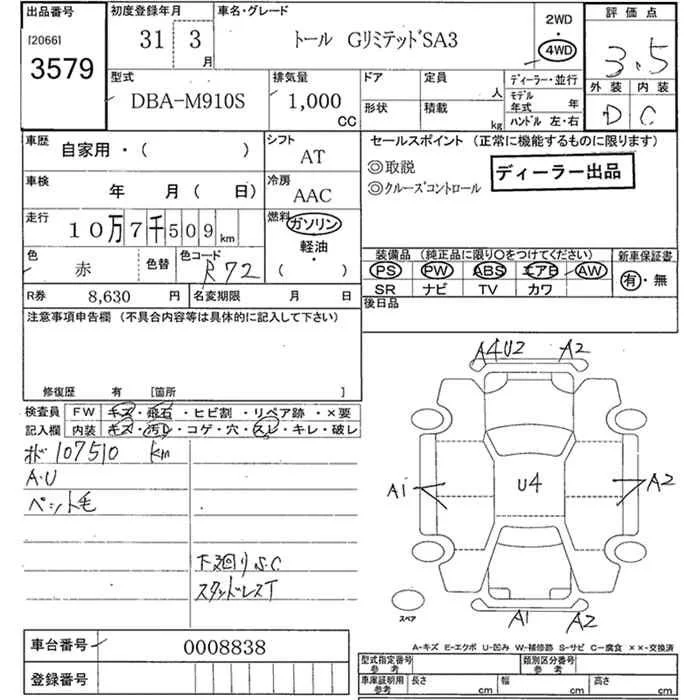 出品番号
[2066]
3579
初度登録年月
31 3 月
車名・グレード
トール GリミテッドSA3
2WD
・
4WD
評価点
3.5
外装 内装
D C
型式
DBA-M910S
排気量
1,000
CC
ドア
定員
人
形状
積載
kg
ディーラー・並行
モデル年式 年
ハンドル 左・右
車歴
自家用・( )
シフト
AT
車検
年 月 ( 日)
冷房
AAC
走行
10万7千509 km
燃料
ガソリン
軽油・
( )
色
赤
色替
色コード
R72
R券
8,630 円
名変期限 月 日
セールスポイント (正常に機能するものに限ります)
◎取説
◎クルーズコントロール
ディーラー出品
装備品 (純正品に限り〇をつけてください)
PS PW ABS エアB AW
SR ナビ TV カワ
新車保証書
有・無
後日品
注意事項申告欄 (不具合内容等は具体的に記入して下さい)
修復歴 有 [箇所 ]
検査員記入欄
FW キズ・飛石・ヒビ割・リペア跡・×要
内装 キズ・汚レ・コゲ・穴・スレ・キレ・破レ
メ 107510 km
A.U
ペット毛
下廻りS.C
スタッドレスT
A4U2
A2
A1
U4
A2
A1
A2
スペア
A-キズ E-エクボ U-凹み W-補修跡 S-サビ C-腐食 ××-交換済
車台番号
0008838
登録番号
型式指定番号
参考
類別区分番号
参考
車庫証明用
参考
長さ cm
幅 cm
高さ cm